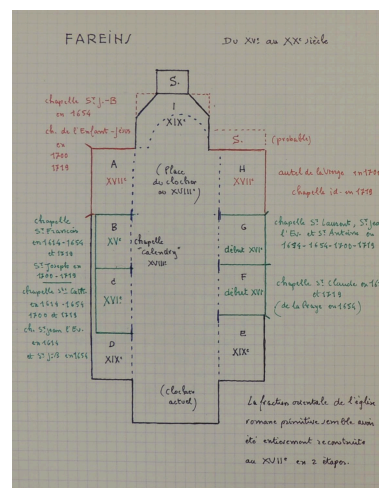 FAREINS
Du XVe au XXe siècle
S.
I
XIXe
chapelle St J.-B
en 1654
ch. de l'Enfant-Jésus
en
1700
1719
S.
(probable)
A
XVIIe
(Place
du clocher
au XVIIIe)
H
XVIIe
autel de la Vierge en 170
chapelle id. en 1719
chapelle
St François
en 1614-1654
et 1719
St Joseph en
1700-1719
B
XVe
chapelle
"calendry"
XVIIIe
G
début XVIe
chapelle St Laurent, St Jean
l'Ev. et St Antoine en
1614-1654-1700-1719
chapelle Ste Cath.
en 1614-1654
1700 et 1719
ch. St Jean l'Ev.
en 1614
et St J.B en 1654
C
XVIe
F
début XVIe
chapelle St Claude en
et 1719
(de la en 1654)
D
XIXe
E
XIXe
(clocher
actuel)
La fraction orientale de l'église
romane primitive semble avoir
été entièrement reconstruite
au XVIIe en 2 étapes.